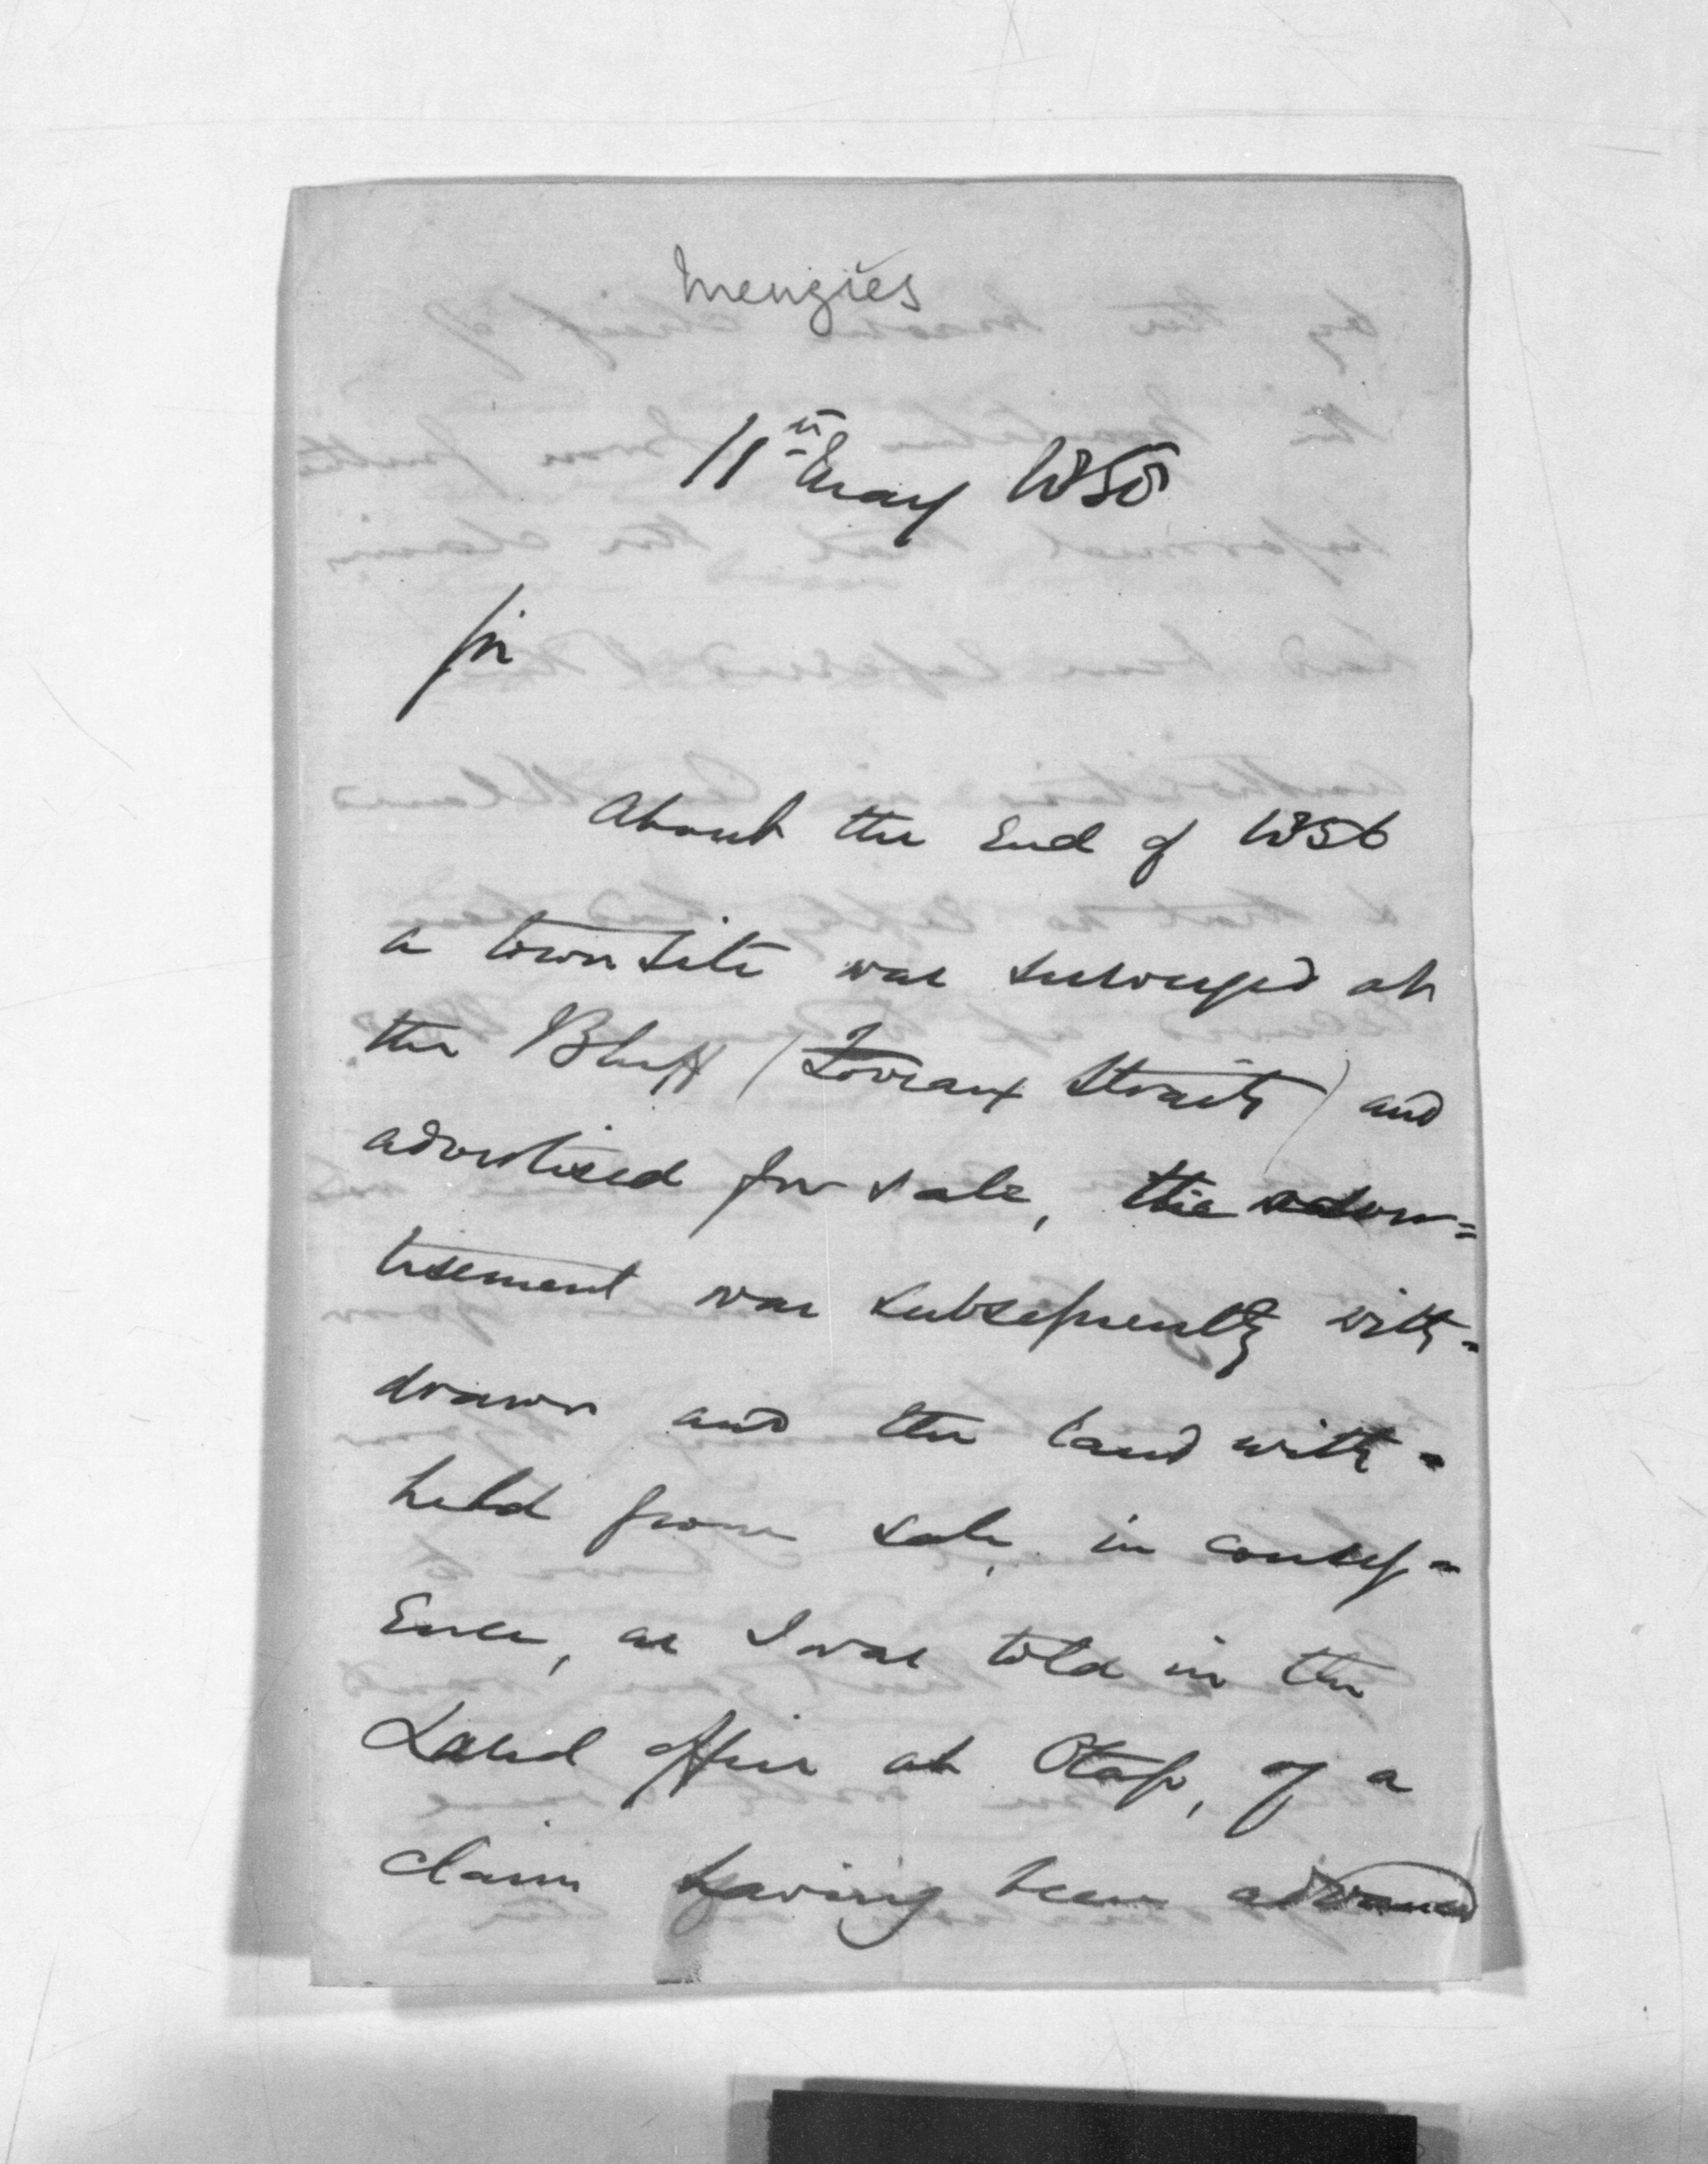 Menzies
11th May 1858
Sir
About the End of 1856
a town site was surveyed at
the Bluff (Foveaux Straits) and
advertised for sale, this adver=
tisement was subsequently with=
drawn and the land with=
held from sale, in consequ=
Ence, as I was told in the
Land office at Otago, of a
claim having been advanced